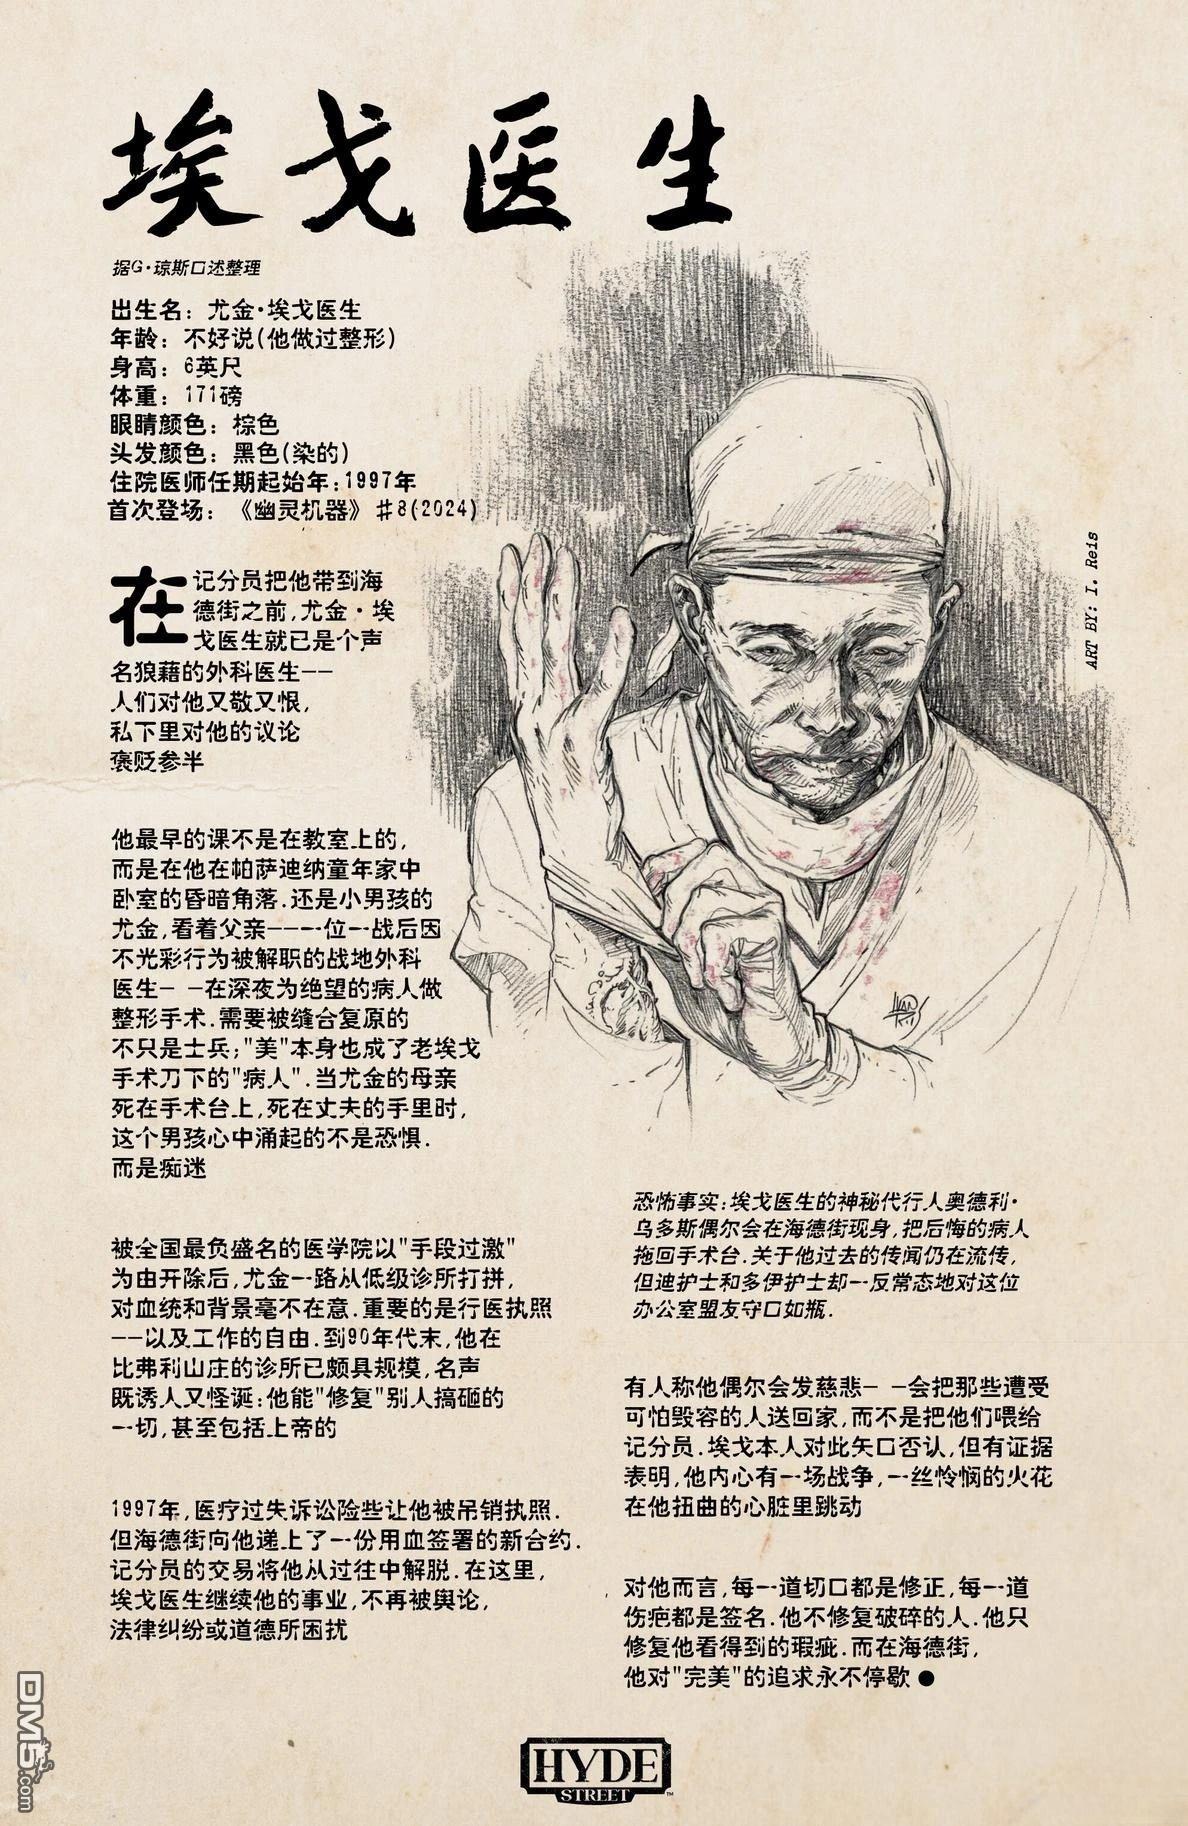 埃戈医生
据G·琼斯口述整理
出生名：尤金·埃戈医生
年龄：不好说(他做过整形)
身高：6英尺
体重：171磅
眼睛颜色：棕色
头发颜色：黑色(染的)
住院医师任期起始年：1997年
首次登场：《幽灵机器》#8(2024)
在记分员把他带到海
德街之前,尤金·埃
戈医生就已是个声
名狼藉的外科医生——
人们对他又敬又恨,
私下里对他的议论
褒贬参半
他最早的课不是在教室上的,
而是在他在帕萨迪纳童年家中
卧室的昏暗角落.还是小男孩的
尤金,看着父亲——一位一战后因
不光彩行为被解职的战地外科
医生— —在深夜为绝望的病人做
整形手术.需要被缝合复原的
不只是士兵;"美"本身也成了老埃戈
手术刀下的"病人".当尤金的母亲
死在手术台上,死在丈夫的手里时,
这个男孩心中涌起的不是恐惧.
而是痴迷
被全国最负盛名的医学院以"手段过激"
为由开除后,尤金一路从低级诊所打拼,
对血统和背景毫不在意.重要的是行医执照
——以及工作的自由.到90年代末,他在
比弗利山庄的诊所已颇具规模,名声
既诱人又怪诞:他能"修复"别人搞砸的
一切,甚至包括上帝的
1997年,医疗过失诉讼险些让他被吊销执照.
但海德街向他递上了一份用血签署的新合约.
记分员的交易将他从过往中解脱.在这里,
埃戈医生继续他的事业,不再被舆论,
法律纠纷或道德所困扰
ART BY: I. Reis
恐怖事实:埃戈医生的神秘代行人奥德利·
乌多斯偶尔会在海德街现身,把后悔的病人
拖回手术台.关于他过去的传闻仍在流传,
但迪护士和多伊护士却一反常态地对这位
办公室盟友守口如瓶.
有人称他偶尔会发慈悲— —会把那些遭受
可怕毁容的人送回家,而不是把他们喂给
记分员.埃戈本人对此矢口否认,但有证据
表明,他内心有一场战争,一丝怜悯的火花
在他扭曲的心脏里跳动
对他而言,每一道切口都是修正,每一道
伤疤都是签名.他不修复破碎的人.他只
修复他看得到的瑕疵.而在海德街,
他对"完美"的追求永不停歇●
HYDE
STREET™
DM5.com